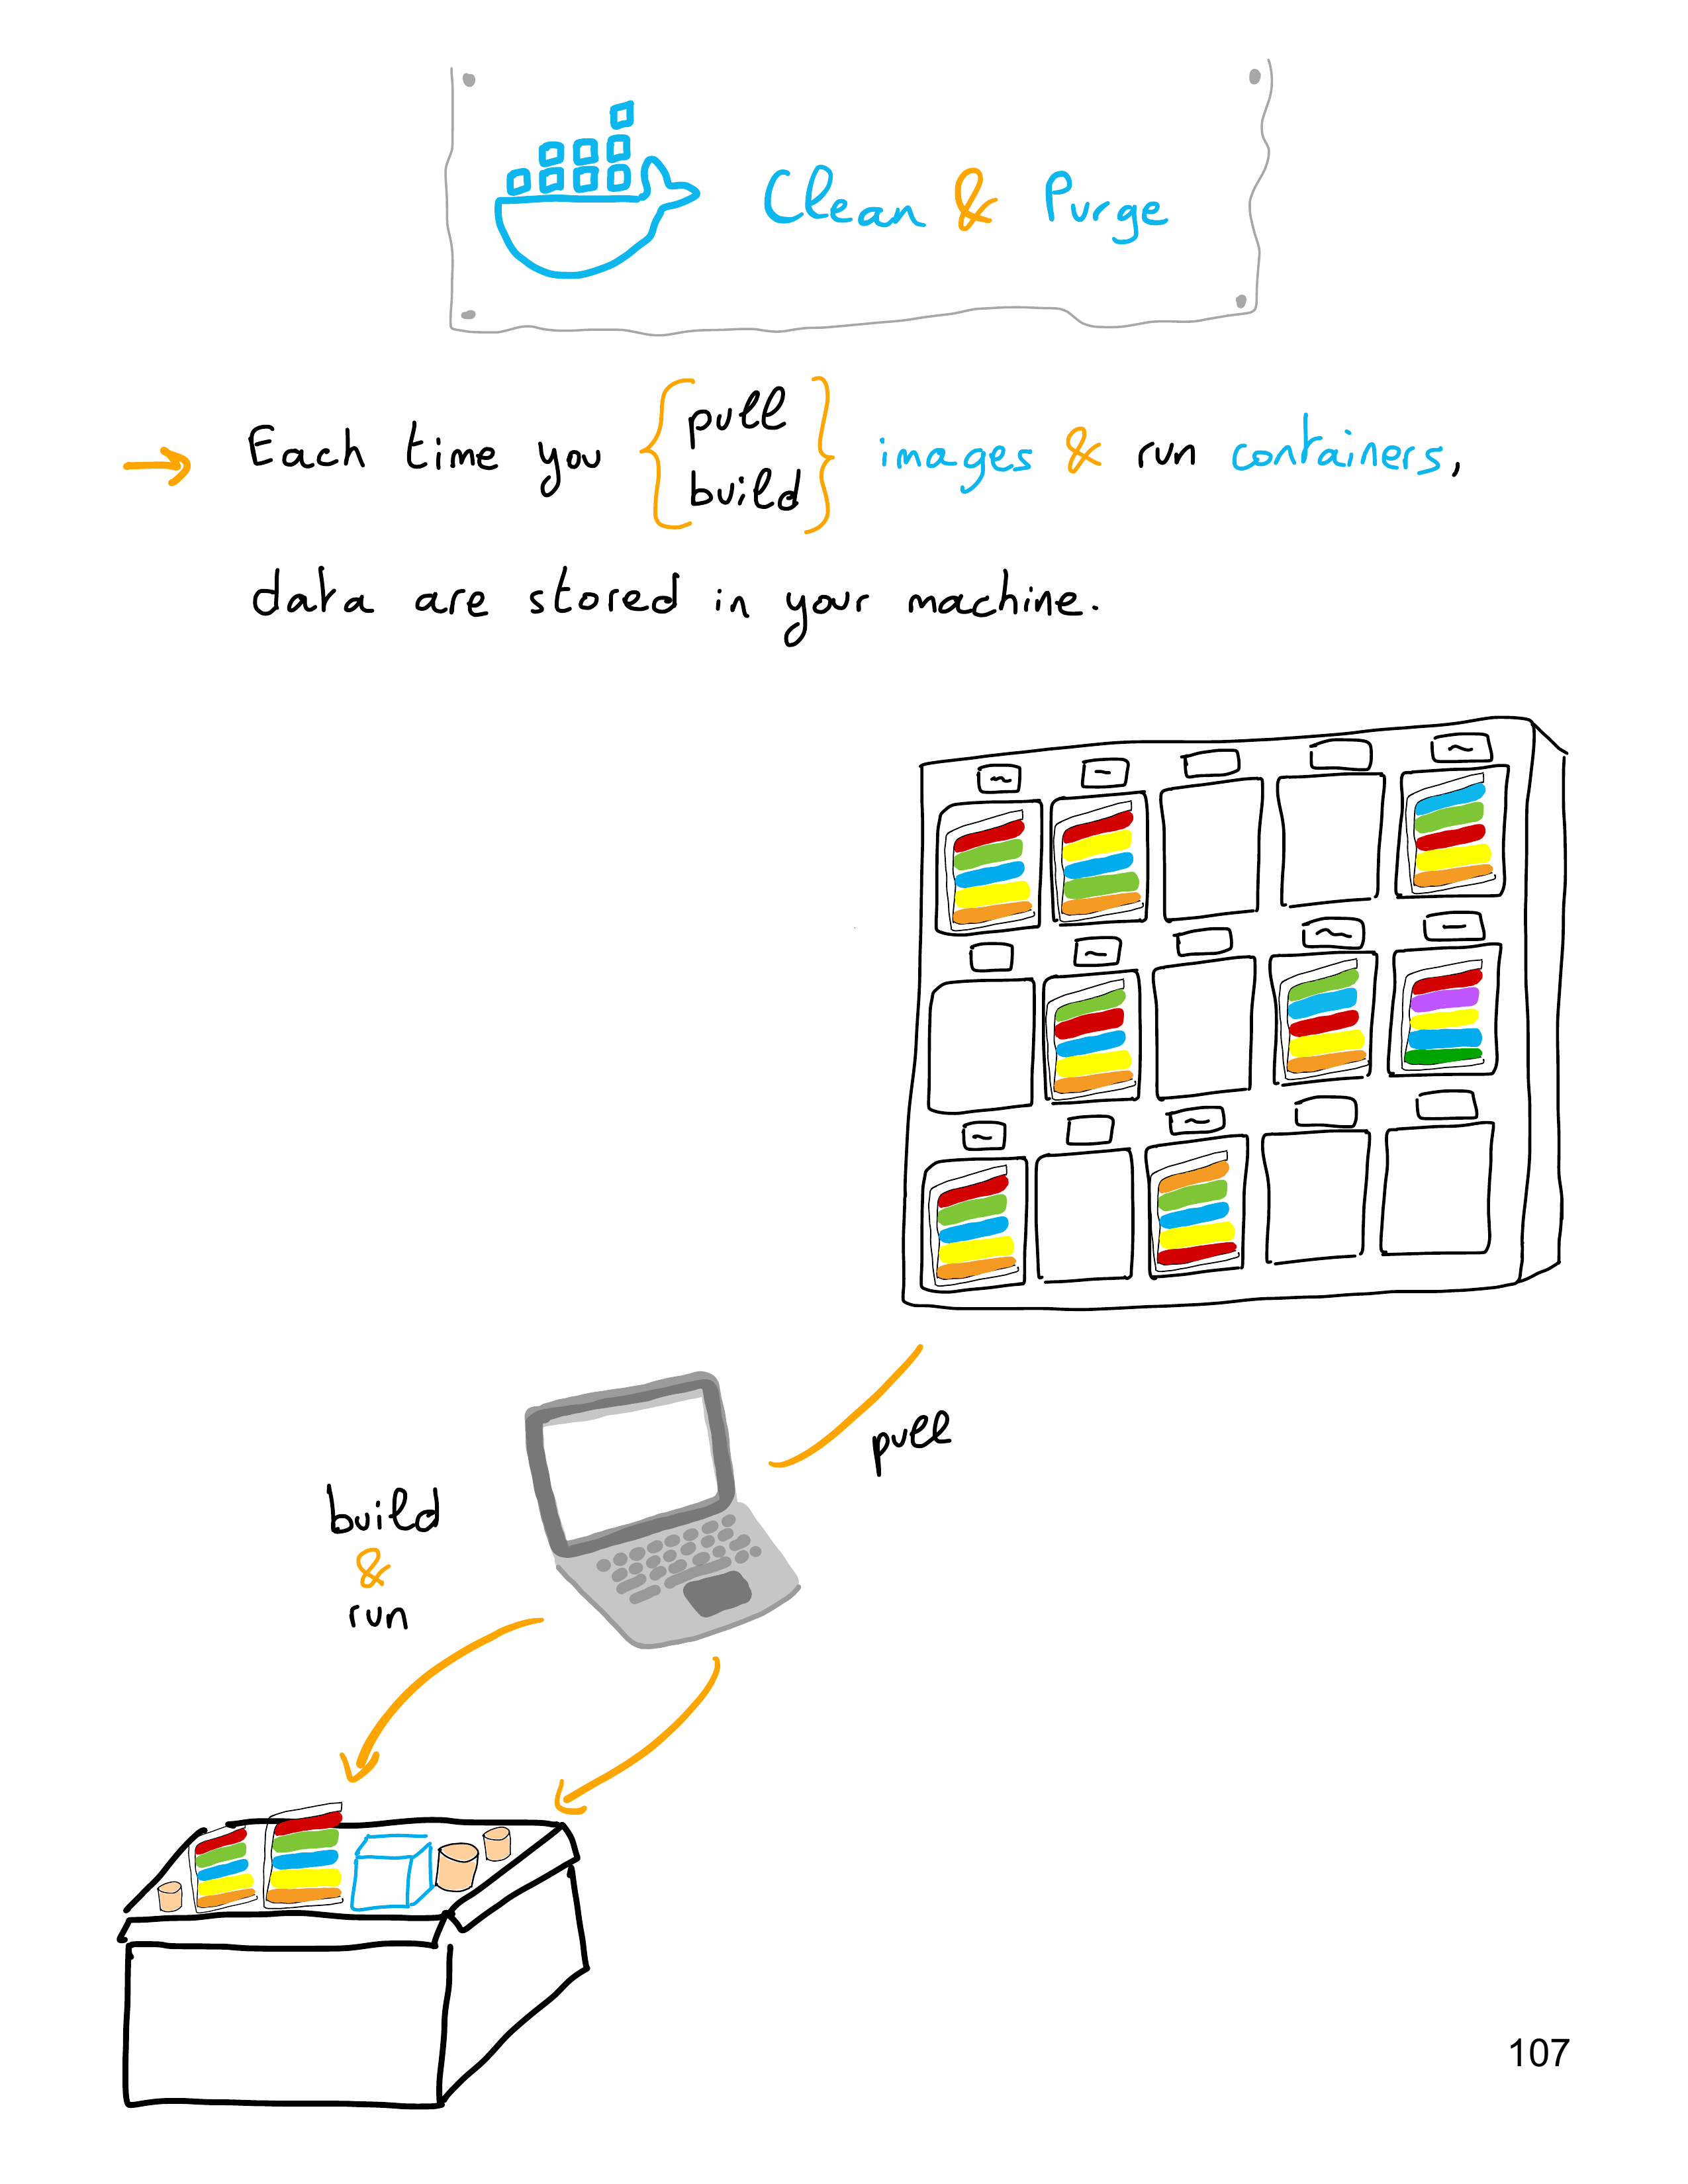 Clean & Purge
→ Each time you { pull build } images & run containers,
data are stored in your machine.
pull
build
&
run
107